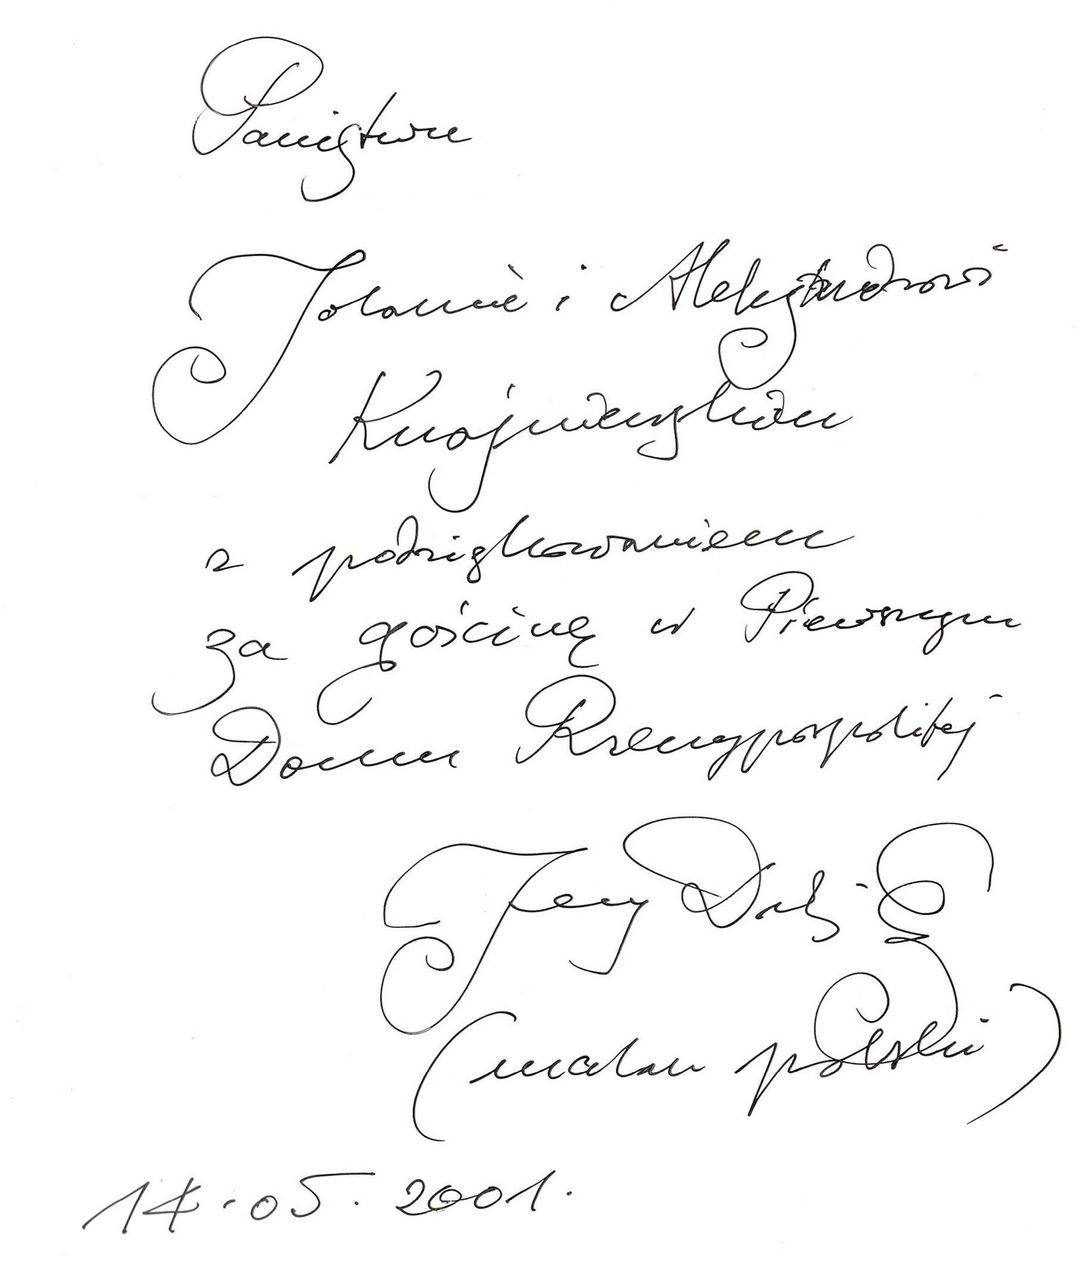 Państwu
Jolancie i Aleksandrowi
Kwaśniewskim
z podziękowaniem
za gościnę w Pierwszym
Domu Rzeczypospolitej
Jerzy Duda-G
(malarz polski)
14.05.2001.